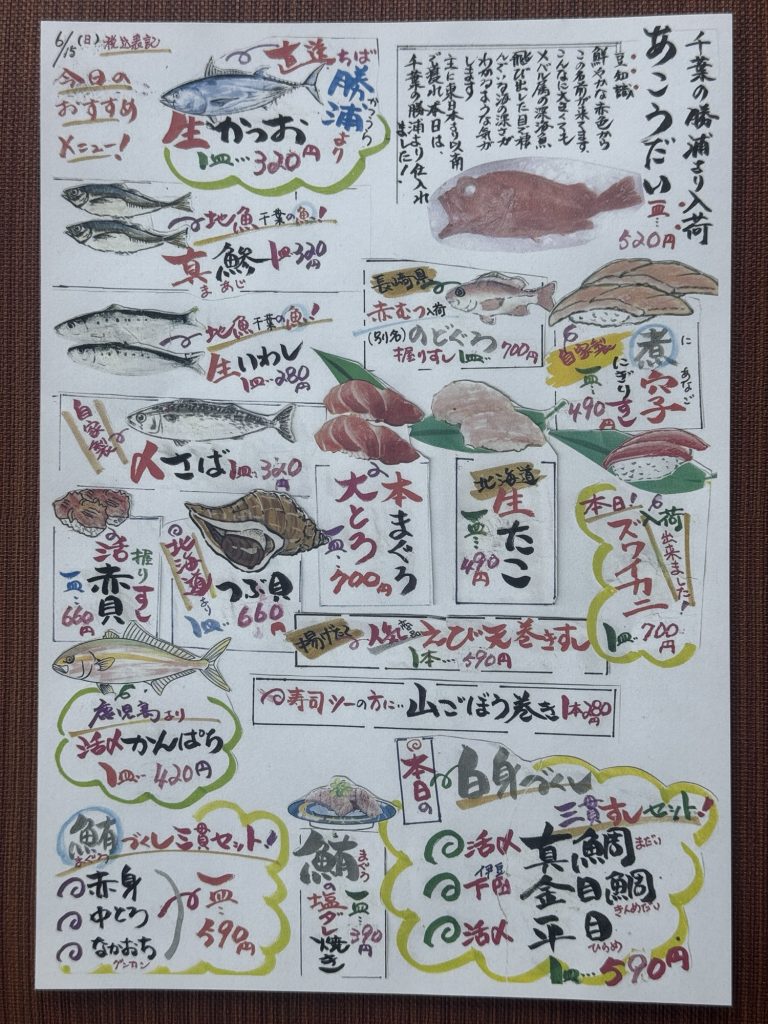 6/15(日)税込表記
今日の
おすすめ
メニュー!
直送ちば
勝浦より
かつうら
生かつお
1皿…320円
千葉の勝浦より入荷
あこうだい
一皿…
520円
豆知識
鮮やかな赤色から
この名前が来てます。
こんなに大きくても
メバル属の深海魚
飛び出した目で棲
んでいる海の深さが
わかるような気が
します
主に東日本より以南
で獲れ本日は、
千葉の勝浦より仕入れ
ました!
地魚千葉の魚!
真鯵 1皿320円
まあじ
地魚千葉の魚!
生いわし
1皿…280円
長崎県
赤むつ入荷
(別名)のどぐろ
握りすし 1皿…700円
自家製
煮穴子
に あなご
にぎりすし
一皿…
490円
自家製
〆さば 1皿…320円
本まぐろ
大とろ
一皿…
700円
北海道
生たこ
一皿…
490円
本日!入荷出来ました!
ズワイカニ
1皿…700円
握りすし
活赤貝
一皿…
660円
北海道より
つぶ貝
1皿…660円
揚げたて 人気 えび天巻きすし
1本…590円
寿司ツーの方に… 山ごぼう巻き 1本280円
鹿児島より
活〆かんぱち
1皿…420円
本日の
白身づくし
三貫すしセット!
活〆 真鯛 まだい
伊豆
下田 金目鯛 きんめだい
活〆 平目 ひらめ
1皿…590円
鮪づくし三貫セット!
まぐろ
赤身
中とろ
なかおち
グンカン
一皿…
590円
鮪の塩ダレ焼き
まぐろ
一皿…390円